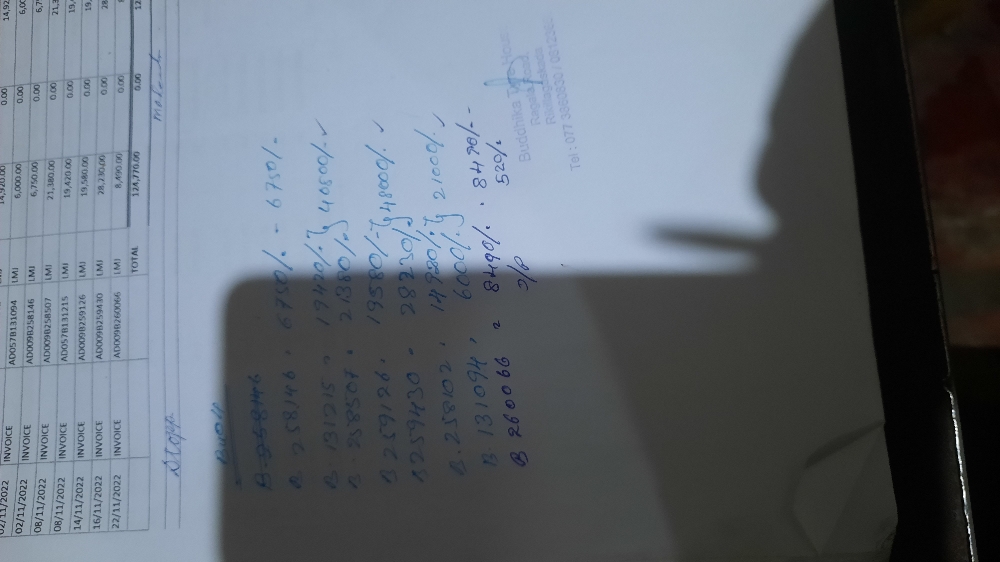 02/11/2022 14,920.00 0.00 14,92
02/11/2022 INVOICE AD057B131094 LMI 6,000.00 0.00 6,00
08/11/2022 INVOICE AD009B258146 LMI 6,750.00 0.00 6,7
08/11/2022 INVOICE AD009B258507 LMI 21,380.00 0.00 21,3
14/11/2022 INVOICE AD057B131215 LMI 19,420.00 0.00 19,4
16/11/2022 INVOICE AD009B259126 LMI 19,580.00 0.00 19,
22/11/2022 INVOICE AD009B259430 LMI 28,230.00 0.00 28
INVOICE AD009B260066 LMI 8,490.00 0.00
TOTAL 124,770.00 0.00 12
B 258146
B 258146 . 6750/. - 6750/.
B 131215 .. 19420/. } 40800/. ✓
B . 258507 . 21380/.
B 259126 . 19580/- } 48000/. ✓
B 259430 . 28230/.
B . 258102 . 14920/. } 21000/. ✓
B 131094 , 6000/.
B 260066 = 8490/. . 8490/. -
O/P 520/.
Buddhika
Tel : 077